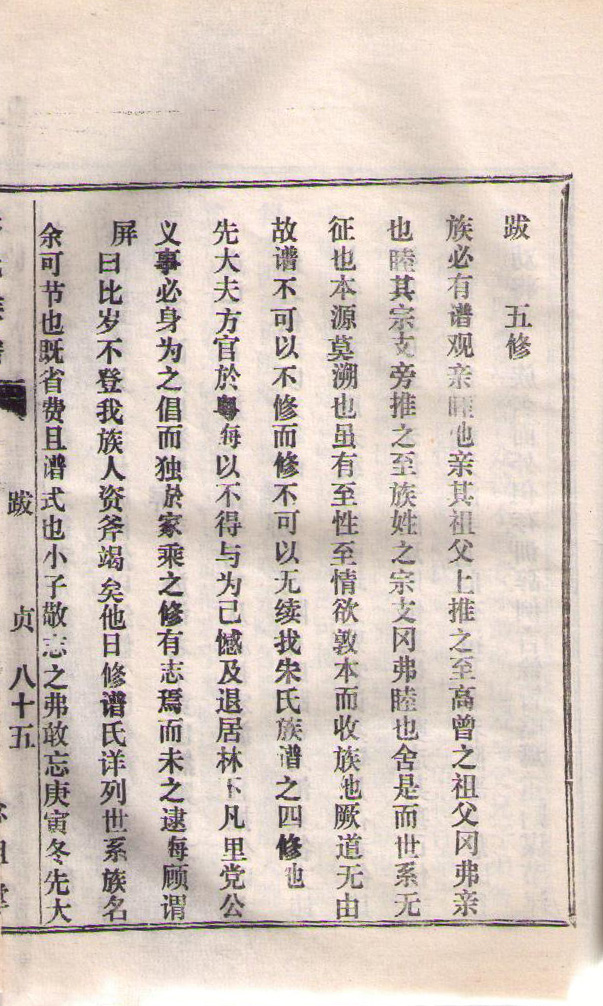 跋 五修
族必有谱观亲睦也亲其祖父上推之至高曾之祖父冈弗亲
也睦其宗支旁推之至族姓之宗支冈弗睦也舍是而世系无
征也本源莫溯也虽有至性至情欲敦本而收族也厥道无由
故谱不可以不修而修不可以无续我朱氏族谱之四修也
先大夫方官於粤每以不得与为己憾及退居林下凡里党公
义事必身为之倡而独於家乘之修有志焉而未之逮每顾谓
屏曰比岁不登我族人资斧竭矣他日修谱氏详列世系族名
余可节也既省费且谱式也小子敬志之弗敢忘庚寅冬先大
跋 贞 八十五